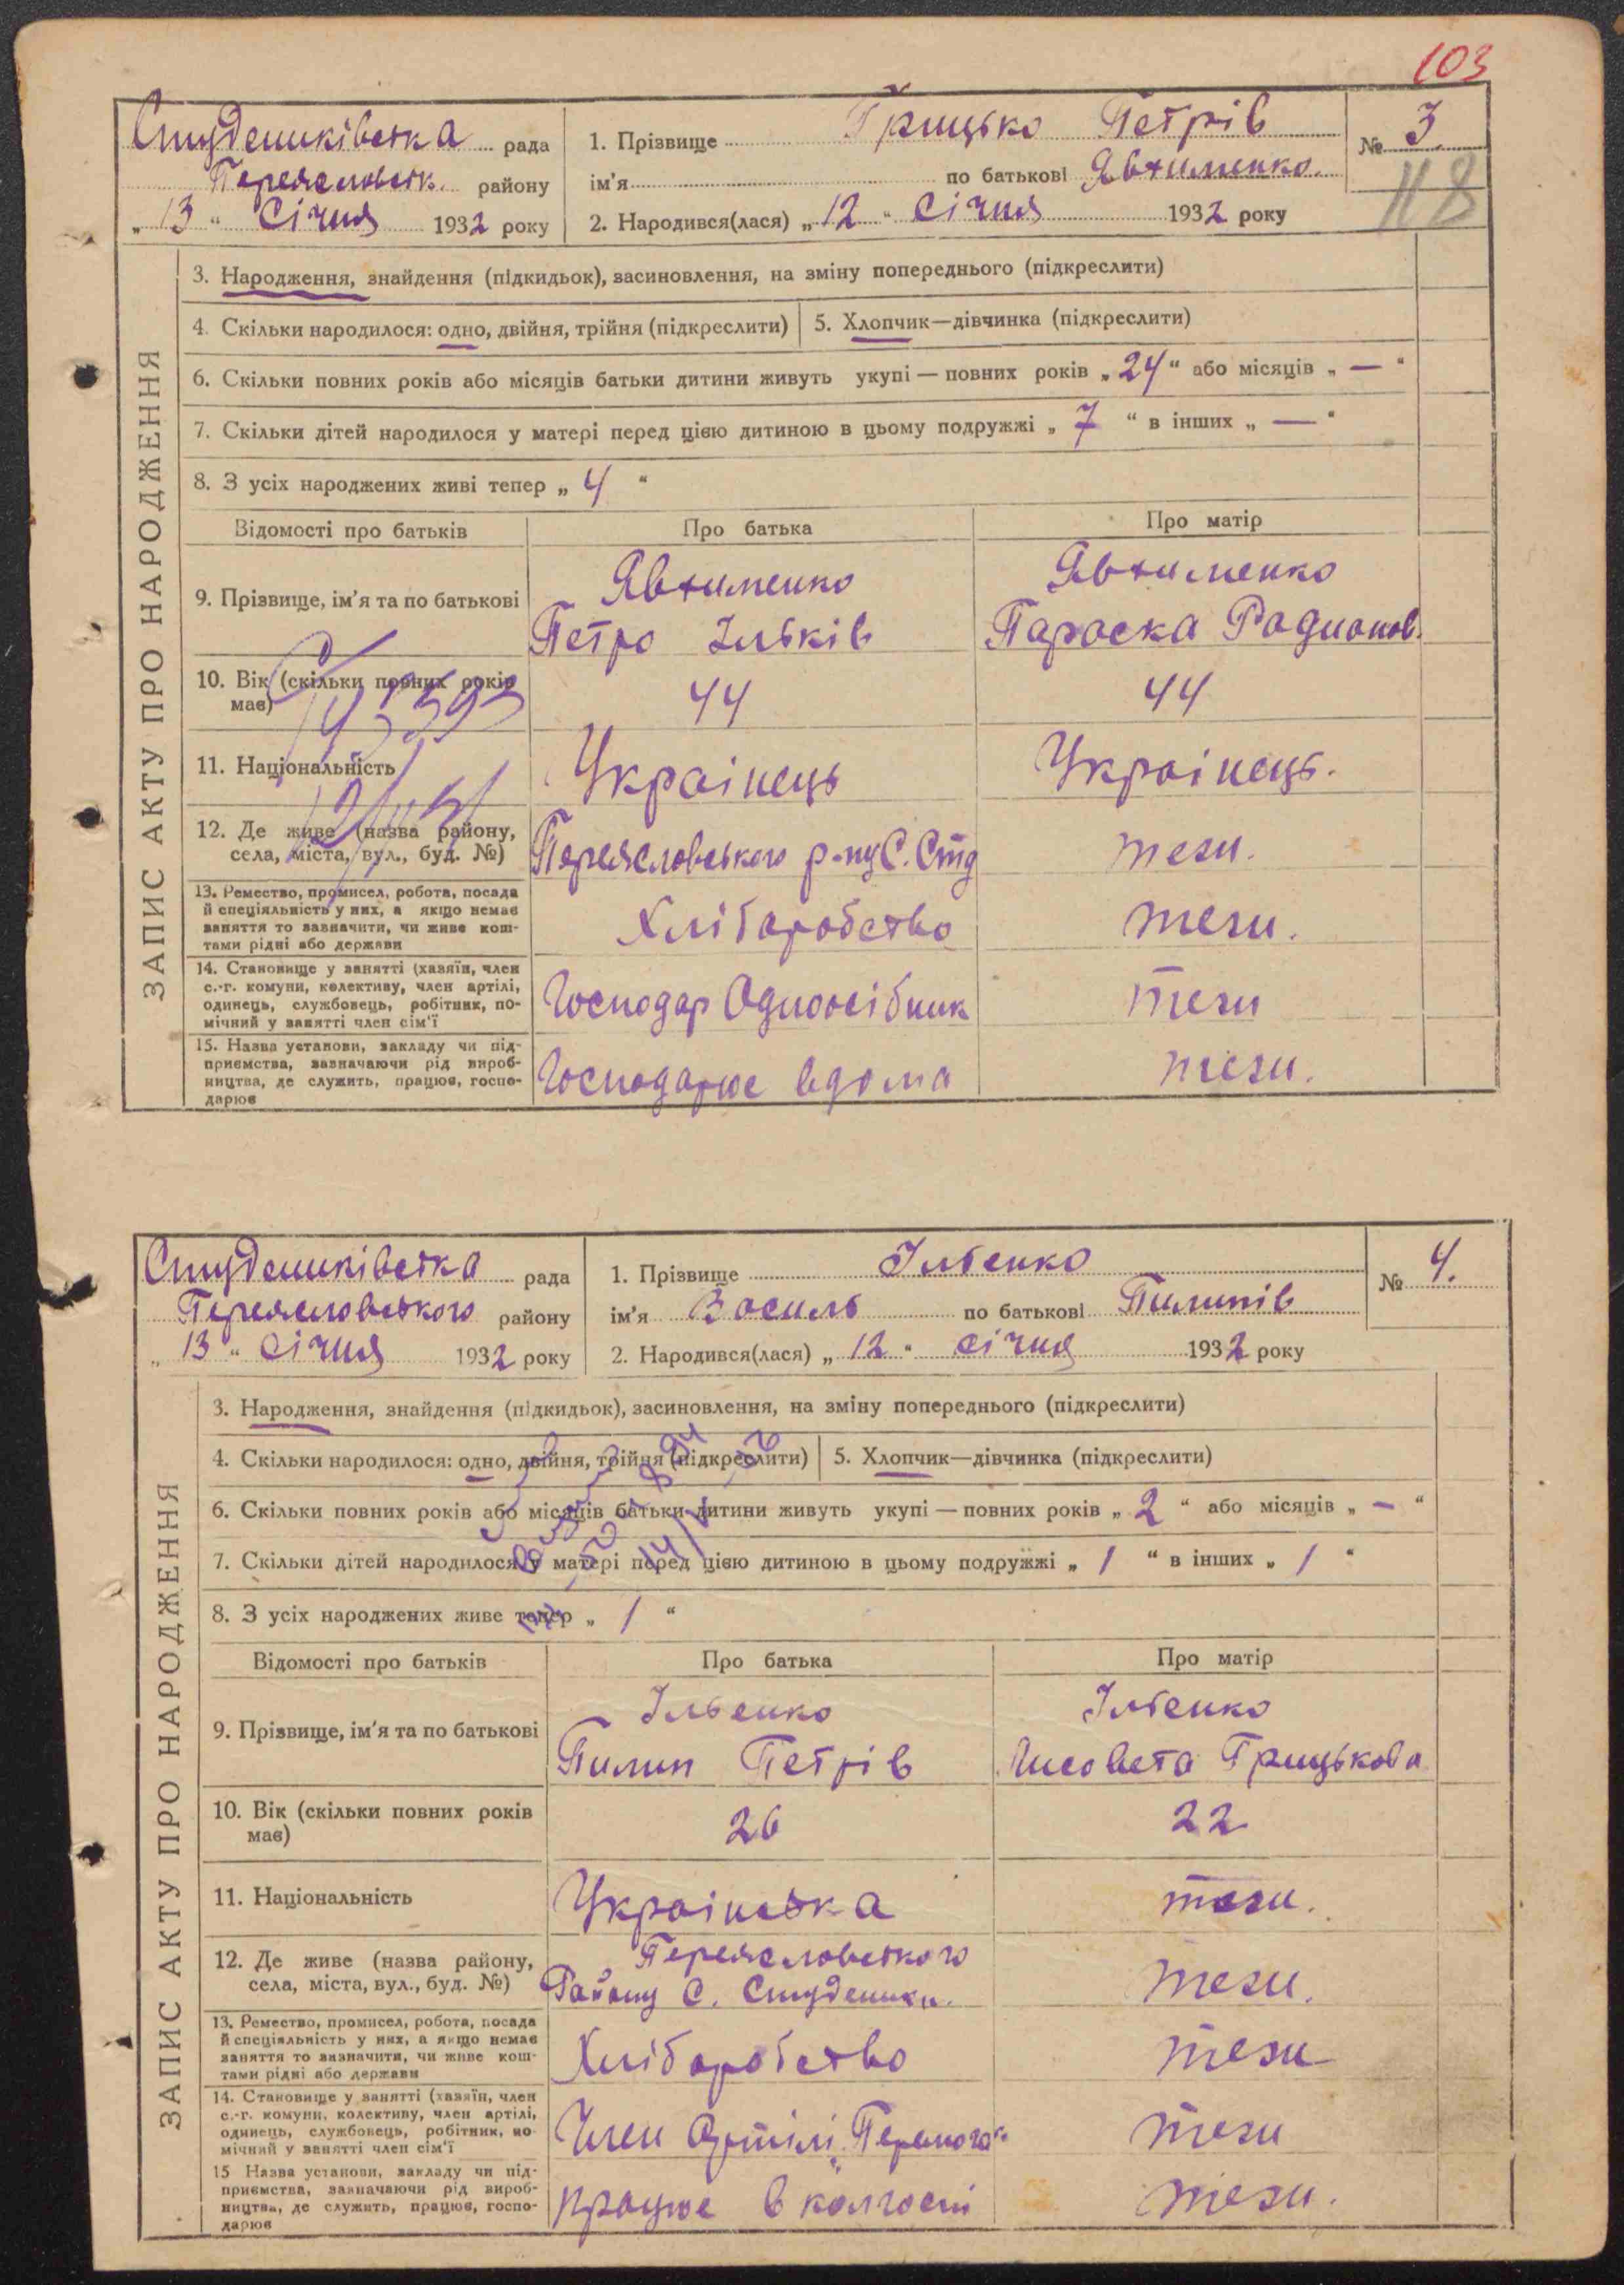 103
Студениківська рада
Переяславськ. району
„13“ Січня 1932 року
1. Прізвище Грицько Петрів
ім'я по батькові Явтименко.
2. Народився(лася) „12“ Січня 1932 року
№ 3.
118
ЗАПИС АКТУ ПРО НАРОДЖЕННЯ
3. Народження, знайдення (підкидьок), засиновлення, на зміну попереднього (підкреслити)
4. Скільки народилося: одно, двійня, трійня (підкреслити) 5. Хлопчик—дівчинка (підкреслити)
6. Скільки повних років або місяців батьки дитини живуть укупі — повних років „24“ або місяців „—“
7. Скільки дітей народилося у матері перед цією дитиною в цьому подружжі „7“ в інших „—“
8. З усіх народжених живі тепер „4“
Відомості про батьків Про батька Про матір
9. Прізвище, ім'я та по батькові
Явтименко
Петро Ільків
Явтименко
Параска Радионов.
10. Вік (скільки повних років
має)
44 44
11. Національність Украінець Украінець.
12. Де живе (назва району,
села, міста, вул., буд. №)
Переяславського р-ну С. Студ
тези.
13. Ремество, промисел, робота, посада
й спеціяльність у них, а якщо немає
заняття то зазначити, чи живе кош-
тами рідні або держави
Хліборобство тези.
14. Становище у занятті (хазяїн, член
с.-г. комуни, колективу, член артілі,
одинець, службовець, робітник, по-
мічний у занятті член сім'ї
Господар Одноосібник тези
15. Назва установи, закладу чи під-
приємства, зазначаючи рід вироб-
ництва, де служить, працює, госпо-
дарює
Господарює вдома тези.
Студениківська рада
Переяславського району
„13“ Січня 1932 року
1. Прізвище Ільєнко
ім'я Василь по батькові Пилипів
2. Народився(лася) „12“ січня 1932 року
№ 4.
ЗАПИС АКТУ ПРО НАРОДЖЕННЯ
3. Народження, знайдення (підкидьок), засиновлення, на зміну попереднього (підкреслити)
4. Скільки народилося: одно, двійня, трійня (підкреслити) 5. Хлопчик—дівчинка (підкреслити)
6. Скільки повних років або місяців батьки дитини живуть укупі — повних років „2“ або місяців „—“
7. Скільки дітей народилося у матері перед цією дитиною в цьому подружжі „1“ в інших „1“
8. З усіх народжених живе тепер „1“
Відомості про батьків Про батька Про матір
9. Прізвище, ім'я та по батькові
Ільенко
Пилип Петрів
Ільєнко
Лисовета Грицькова
10. Вік (скільки повних років
має)
26 22
11. Національність Украінська тези.
12. Де живе (назва району,
села, міста, вул., буд. №)
Переяславського
Району С. Студеники.
тези.
13. Ремество, промисел, робота, посада
й спеціяльність у них, а якщо немає
заняття то зазначити, чи живе кош-
тами рідні або держави
Хліборобство тези
14. Становище у занятті (хазяїн, член
с.-г. комуни, колективу, член артілі,
одинець, службовець, робітник, по-
мічний у занятті член сім'ї
Член Артілі „Перемога“ тези
15 Назва установи, закладу чи під-
приємства, зазначаючи рід вироб-
ництва, де служить, працює, госпо-
дарює
працює в колгоспі тези.